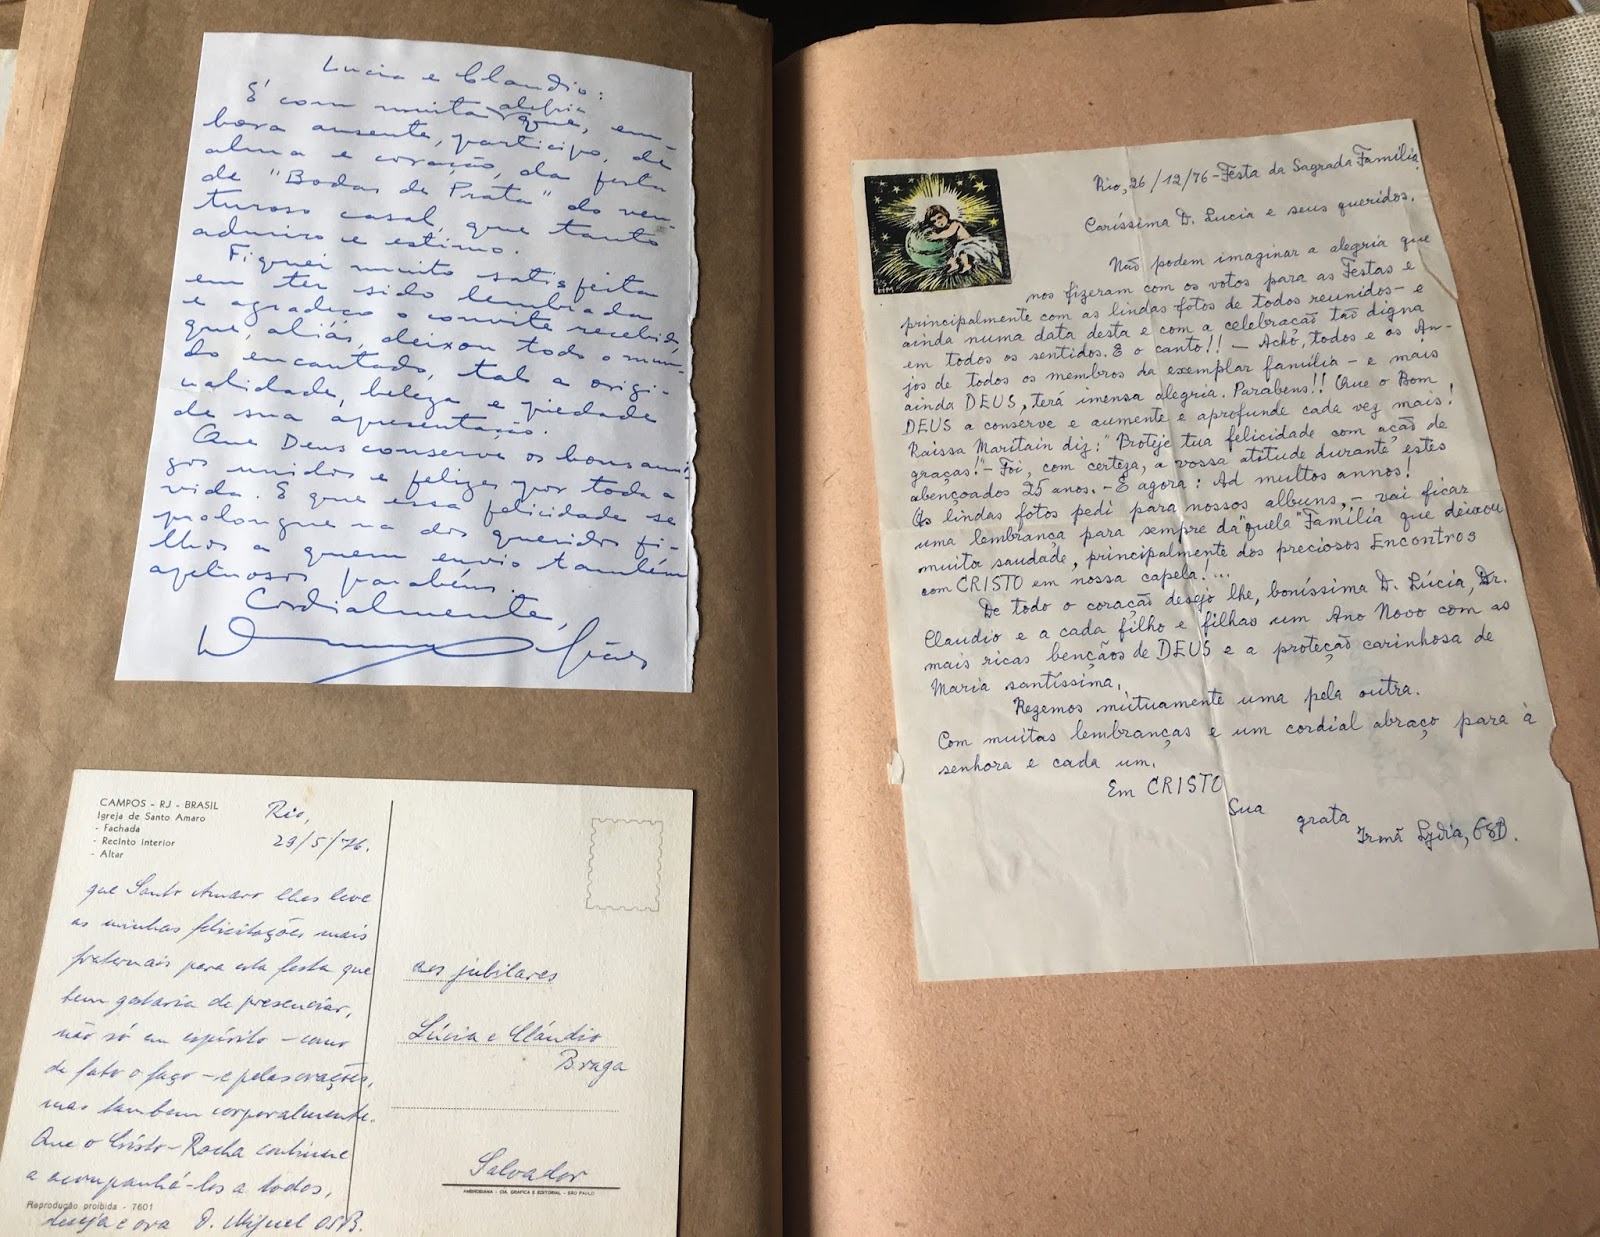 Lucia e Claudio:
É com muita alegria que, em-
bora ausente, participo, de
alma e coração, da festa
de "Bodas de Prata" do ven-
turoso casal, que tanto
admiro e estimo.
Fiquei muito satisfeita
em ter sido lembrada
e agradeço o convite recebido,
que, aliás, deixou todo o mun-
do encantado, tal a origi-
nalidade, beleza e piedade
de sua apresentação.
Que Deus conserve os bons ami-
gos unidos e felizes por toda a
vida. E que essa felicidade se
prolongue na dos queridos fi-
lhos a quem envio também
afetuosos parabéns.
Cordialmente,
CAMPOS - RJ - BRASIL
Igreja de Santo Amaro
- Fachada
- Recinto interior
- Altar
Rio,
29/5/76.
que Santo Amaro lhes leve
as minhas felicitações mais
fraternais para esta festa que
bem gostaria de presenciar,
não só em espírito - como
de fato o faço - e pelas orações,
mas tambem corporalmente.
Que o Cristo-Rocha continue
a acompanhá-los a todos,
Reprodução proibida - 7601
D. Miguel OSB.
aos jubilares
Lúcia e Cláudio
Braga
Salvador
AMBROSIANA - CIA. GRÁFICA E EDITORIAL - SÃO PAULO
HM
Rio, 26/12/76 - Festa da Sagrada Família
Caríssima D. Lucia e seus queridos,
Não podem imaginar a alegria que
nos fizeram com os votos para as Festas e
principalmente com as lindas fotos de todos reunidos - e
ainda numa data desta e com a celebração tão digna
em todos os sentidos. E o canto!! - Acho, todos e os An-
jos de todos os membros da exemplar família - e mais
ainda DEUS, terá imensa alegria. Parabens!! Que o Bom
DEUS a conserve e aumente e aprofunde cada vez mais!
Raissa Maritain diz: "Proteje tua felicidade com ação de
graças!" - Foi, com certeza, a vossa atitude durante estes
abençoados 25 anos. - E agora: Ad multos annos!
As lindas fotos pedi para nossos albuns, - vai ficar
uma lembrança para sempre da "quela" Família que deixou
muita saudade, principalmente dos preciosos Encontros
com CRISTO em nossa capela!...
De todo o coração desejo lhe, boníssima D. Lúcia, Dr.
Claudio e a cada filho e filhas um Ano Novo com as
mais ricas bençãos de DEUS e a proteção carinhosa de
Maria santíssima.
Rezemos mutuamente uma pela outra.
Com muitas lembranças e um cordial abraço para à
senhora e cada um.
Em CRISTO
Sua grata
Irmã Lydia, OSB.